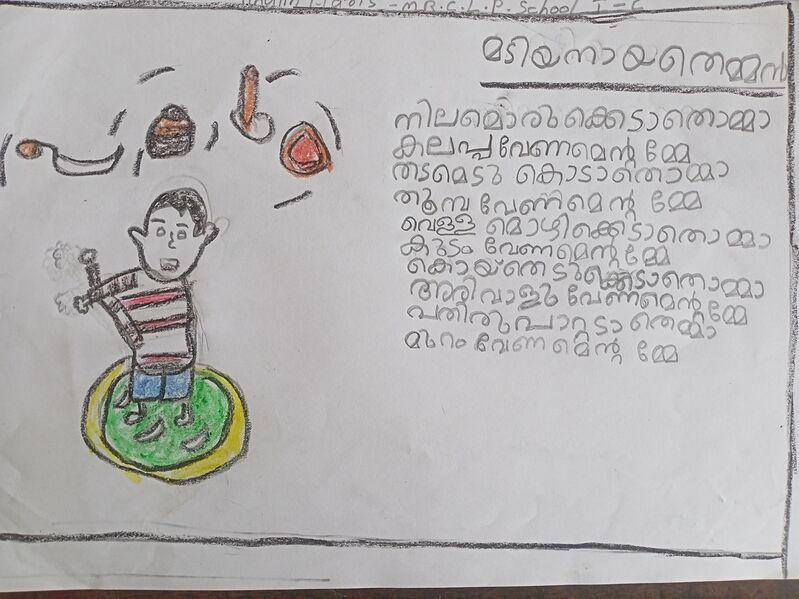 -M.R.C.L.P. School I-C
മടിയനായതെമ്മൻ
നിലമൊരുക്കെടാതൊമ്മാ
കലപ്പവേണമെന്റമ്മേ
തടമെടു കൊടാതൊമ്മാ
തൂമ്പ വേണമെന്റമ്മേ
വെള്ള മൊഴിക്കെടാതൊമ്മാ
കുടം വേണമെന്റമ്മേ
കൊയ്തെടുക്കെടാതൊമ്മാ
അരിവാളുവേണമെന്റമ്മേ
പതിരുപാറ്റടാതെമ്മാ
മുറം വേണമെന്റമ്മേ